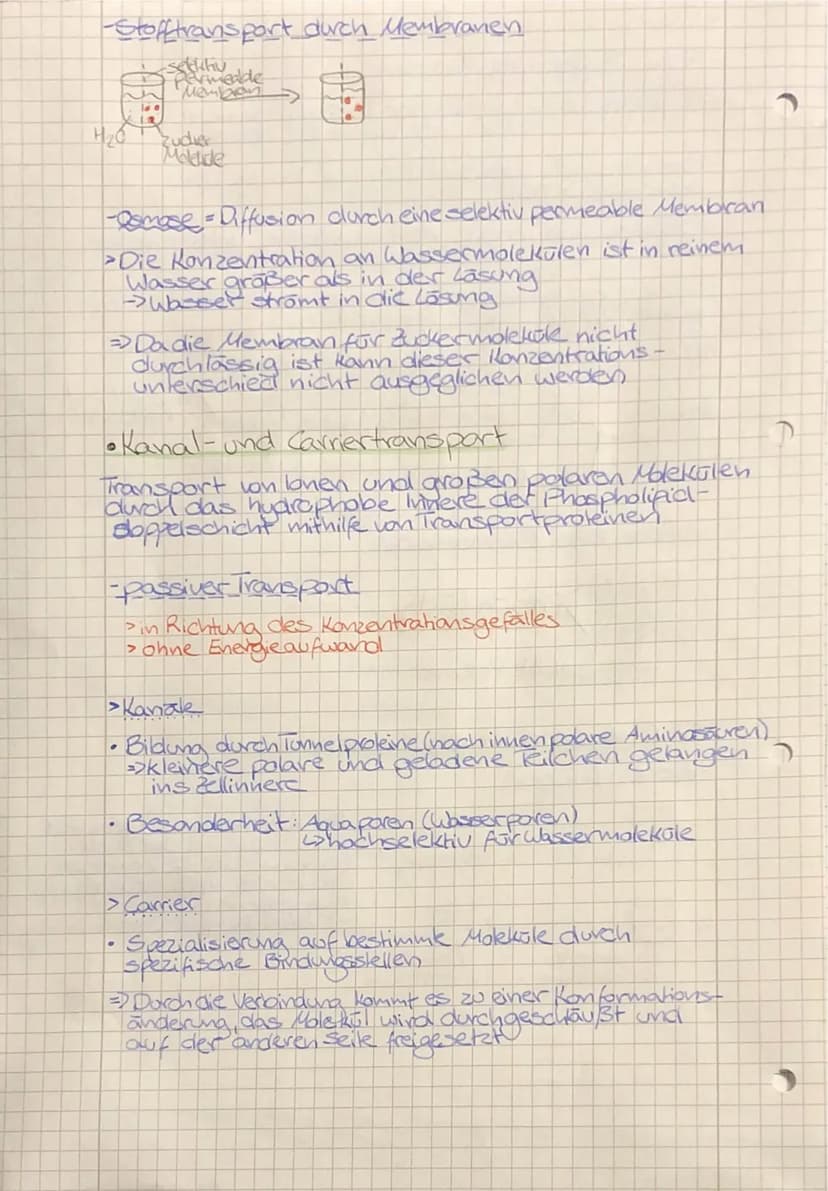 -Stofftransport durch Membranen
selektiv
permeable
Membran
H₂O
Zucker
Moleküle
-Osmose = Diffusion durch eine selektiv permeable Membran
>Die Konzentration an Wassermolekülen ist in reinem
Wasser größer als in der Lösung
->Wasser strömt in die Lösung
=> Da die Membran für Zuckermoleküle nicht
durchlässig ist kann dieser Konzentrations-
unterschied nicht ausgeglichen werden
•Kanal- und Carriertransport
Transport von Ionen und großen polaren Molekülen
durch das hydrophobe Innere der Phospholipid-
doppelschicht mithilfe von Transportproteinen
-passiver Transport
> in Richtung des Konzentrationsgefälles
> ohne Energieaufwand
>Kanäle
• Bildung durch Tunnelproteine (nach innen polare Aminosäuren)
=> kleinere polare und geladene Teilchen gelangen
ins Zellinnere
• Besonderheit: Aquaporen (Wasserporen)
↳hochselektiv für Wassermoleküle
> Carrier
• Spezialisierung auf bestimmte Moleküle durch
spezifische Bindungsstellen
=> Durch die Verbindung kommt es zu einer Konformations-
änderung, das Molekül wird durchgeschläußt und
auf der anderen Seite freigesetzt